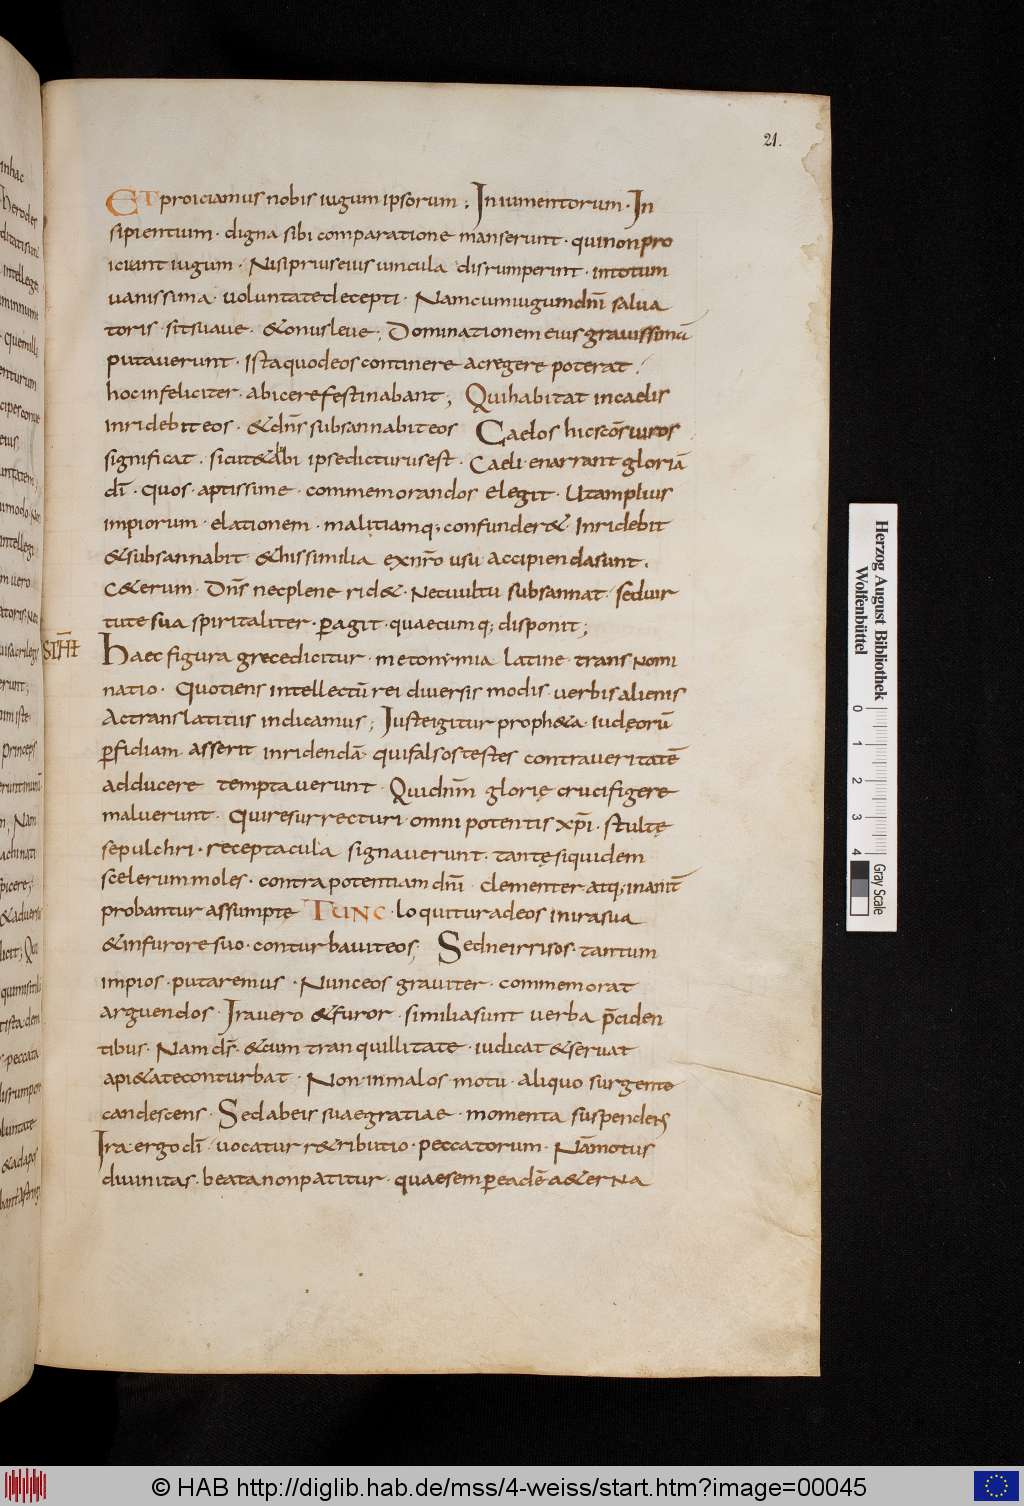 21.
ET proiciamus nobis iugum ipsorum; In iumentorum · In
sipientium · digna sibi comparatione manserunt · qui non pro
iciunt iugum · Nisi prius eius uincula disrumperint · in totum
uanissima · uoluntate decepti · Nam cum iugum dn̄i salua
toris · sit suaue · & onus leue; Dominationem eius grauissimā
putauerunt · Ista quod eos continere ac regere poterat;
hoc infeliciter · abicere festinabant; Qui habitat in caelis
inridebit eos · & dn̄s subsannabit eos Caelos hic scōs uiros
significat · sicut & alibi ipse dicturus est · Caeli enarrant gloriā
dī · quos · aptissime · commemorandos elegit · Ut amplius
impiorum · elationem · malitiamq; confunder& · Inridebit
& subsannabit & his similia ex nr̄o usu accipienda sunt ·
C&erum · Dn̄s nec plene rid& · Nec uultu subsannat · sed uir
tute sua spiritaliter · ꝑagit · quaecumq; disponit;
Haec figura grece dicitur · metonymia latine · trans nomi
natio · Quotiens intellectū rei diuersis modis uerbis alienis
Ac translatitus indicamus; Iuste igitur proph&a iudęorū
ꝑfidiam asserit inridendā · qui falsos testes contra ueritatē
adducere temptauerunt · Qui dnm̄ glorię crucifigere
maluerunt · Qui resurrecturi omnipotentis xp̄i · stultę
sepulchri · receptacula signauerunt · tantę siquidem
scelerum moles · contra potentiam dn̄i clementer atq; inanit̄
probantur assumptę TUNC · loquitur ad eos in ira sua
& in furore suo · conturbauit eos; Sed ne irrisos · tantum
impios · putaremus · Nunc eos grauiter · commemorat
arguendos · Ira uero & furor · similia sunt uerba p̄ciden
tibus · Nam ds̄ · & cum tranquillitate · iudicat & seruat
api&ate conturbat · Non in malos motu · aliquo surgente
candescens · Sed ab eis suae gratiae · momenta suspendens
Ira ergo dī · uocatur r&ributio · peccatorum · Nā motus
diuinitas · beata non patitur · quae semꝑ eadē a&erna
Herzog August Bibliothek
Wolfenbüttel
0 1 2 3 4
Gray Scale
© HAB http://diglib.hab.de/mss/4-weiss/start.htm?image=00045